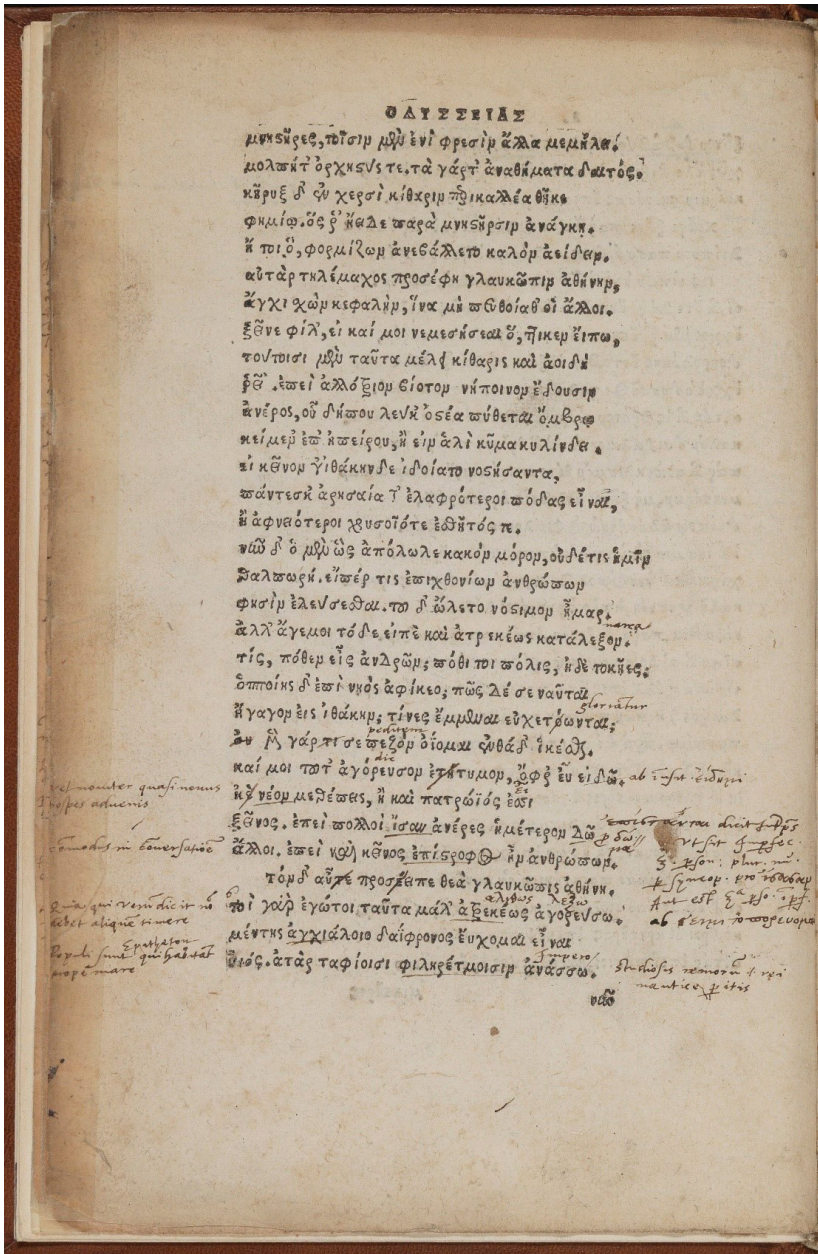 ΟΔΥΣΣΕΙΑΣ
μνηστῆρες, τοῖσιν μὲν ἐνὶ φρεσὶν ἄλλα μεμήλει.
μολπήτ' ὀρχηστύς τε. τὰ γάρ τ' ἀναθήματα δαιτός.
κῆρυξ δ' ἐν χερσὶ κίθαριν περικαλλέα θῆκε
φημίῳ. ὅς ῥ' ἤειδε παρὰ μνηστῆρσιν ἀνάγκῃ.
ἤ τοι ὅ, φορμίζων ἀνεβάλλετο καλὸν ἀείδειν.
αὐτὰρ τηλέμαχος προσέφη γλαυκῶπιν ἀθήνην,
ἄγχι σχὼν κεφαλὴν, ἵνα μὴ πευθοίαθ' οἱ ἄλλοι.
ξεῖνε φίλ', εἰ καί μοι νεμεσήσεαι ὅ, ττικεν εἴπω,
τούτοισι μὲν ταῦτα μέλει κίθαρις καὶ ἀοιδὴ
ῥεῖ'. ἐπεὶ ἀλλότριον βίοτον νήποινον ἔδουσιν
ἀνέρος, οὗ δήπου λεύκ' ὀστέα πύθεται ὄμβρῳ
κείμεν' ἐπ' ἠπείρου, ἢ εἰν ἁλὶ κῦμα κυλίνδει.
εἰ κεῖνόν γ' ἰθάκηνδε ἰδοίατο νοστήσαντα,
πάντες κ' ἀρησαίατ' ἐλαφρότεροι πόδας εἶναι,
ἢ ἀφνειότεροι χρυσοῖότε ἐσθῆτός τε.
νῦν δ' ὁ μὲν ὣς ἀπόλωλε κακὸν μόρον, οὐδέτις ἡμῖν
θαλπωρή. εἴπέρ τις ἐπιχθονίων ἀνθρώπων
φησὶν ἐλεύσεσθαι. τοῦ δ' ὤλετο νόστιμον ἦμαρ.
ἀλλ' ἄγεμοι τόδε εἰπὲ καὶ ἀτρεκέως κατάλεξον.
τίς, πόθεν εἶς ἀνδρῶν; πόθι τοι πόλις, ἠδὲ τοκῆες;
ὁπποίης δ' ἐπὶ νηὸς ἀφίκεο; πῶς δέ σε ναῦται
gloriantur
ἤγαγον εἰς ἰθάκην; τίνες ἔμμεναι εὐχετόωνται;
peditem
οὐ μὲν γάρ τι σε πεζὸν ὀΐομαι ἐνθάδ' ἱκέσθαι.
dic
καί μοι τοῦτ' ἀγόρευσον ἐτήτυμον, ὄφρ' εὖ εἰδῶ.
ἠὲ νέον μεθέπεις, ἢ καὶ πατρώϊός ἐσσι
ξεῖνος. ἐπεὶ πολλοὶ ἴσαν ἀνέρες ἡμέτερον δῶ
ἄλλοι. ἐπεὶ καὶ κεῖνος ἐπίστροφος ἦν ἀνθρώπων.
τὸν δ' αὖτε προσέειπε θεὰ γλαυκῶπις ἀθήνη.
ἀληθῶς λέξω
τοὶ γὰρ ἐγώτοι ταῦτα μάλ' ἀτρεκέως ἀγορεύσω.
μέντης ἀγχιάλοιο δαΐφρονος εὔχομαι εἶναι
Impero
υἱός. ἀτὰρ ταφίοισι φιληρέτμοισιν ἀνάσσω.
νῦν
vel noviter quasi novus
hospes advenis
commodus in conversatione
Quia qui verum dicit non
debet aliquem timere
Epitheton
Populi sunt qui habitant
prope mare
studiosis remorum